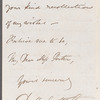 your kind recollection
of my wishes –
Believe me to be,
My Dear
Yours sincerely